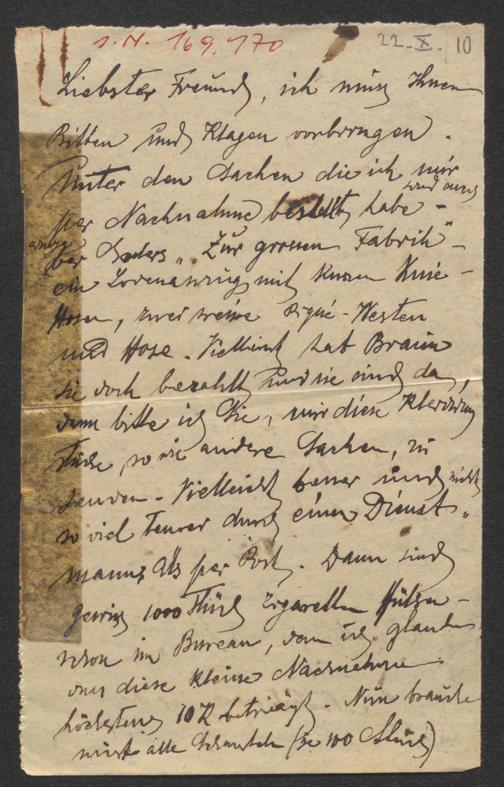 I.N. 169.170
22-X-10
Liebster Freund, ich muß Ihnen
Bitten und Klagen vorbringen.
Unter den Sachen die ich mir
per Nachnahme bestellt habe -
"Zur grossen Fabrik" -
ein Lodenanzug mit kurzen Knie-
Hosen, zwei weisse Piqué-Westen
und Hose. Vielleicht hat Braun
sie doch bezahlt und sie sind da,
dann bitte ich Sie, mir diese Kleidungs
stücke, so wie andere Sachen, zu
senden. Vielleicht besser und nicht
so viel teurer durch einen Dienst-
mann, als per Post. Dann sind
gewiß 1000 Stück Zigaretten Hülsen-
schon im Bureau, denn ich glaube
diese kleine Nachnahme
höchstens 10 K beträgt. Nun brauche
alle (je 100 Stück)